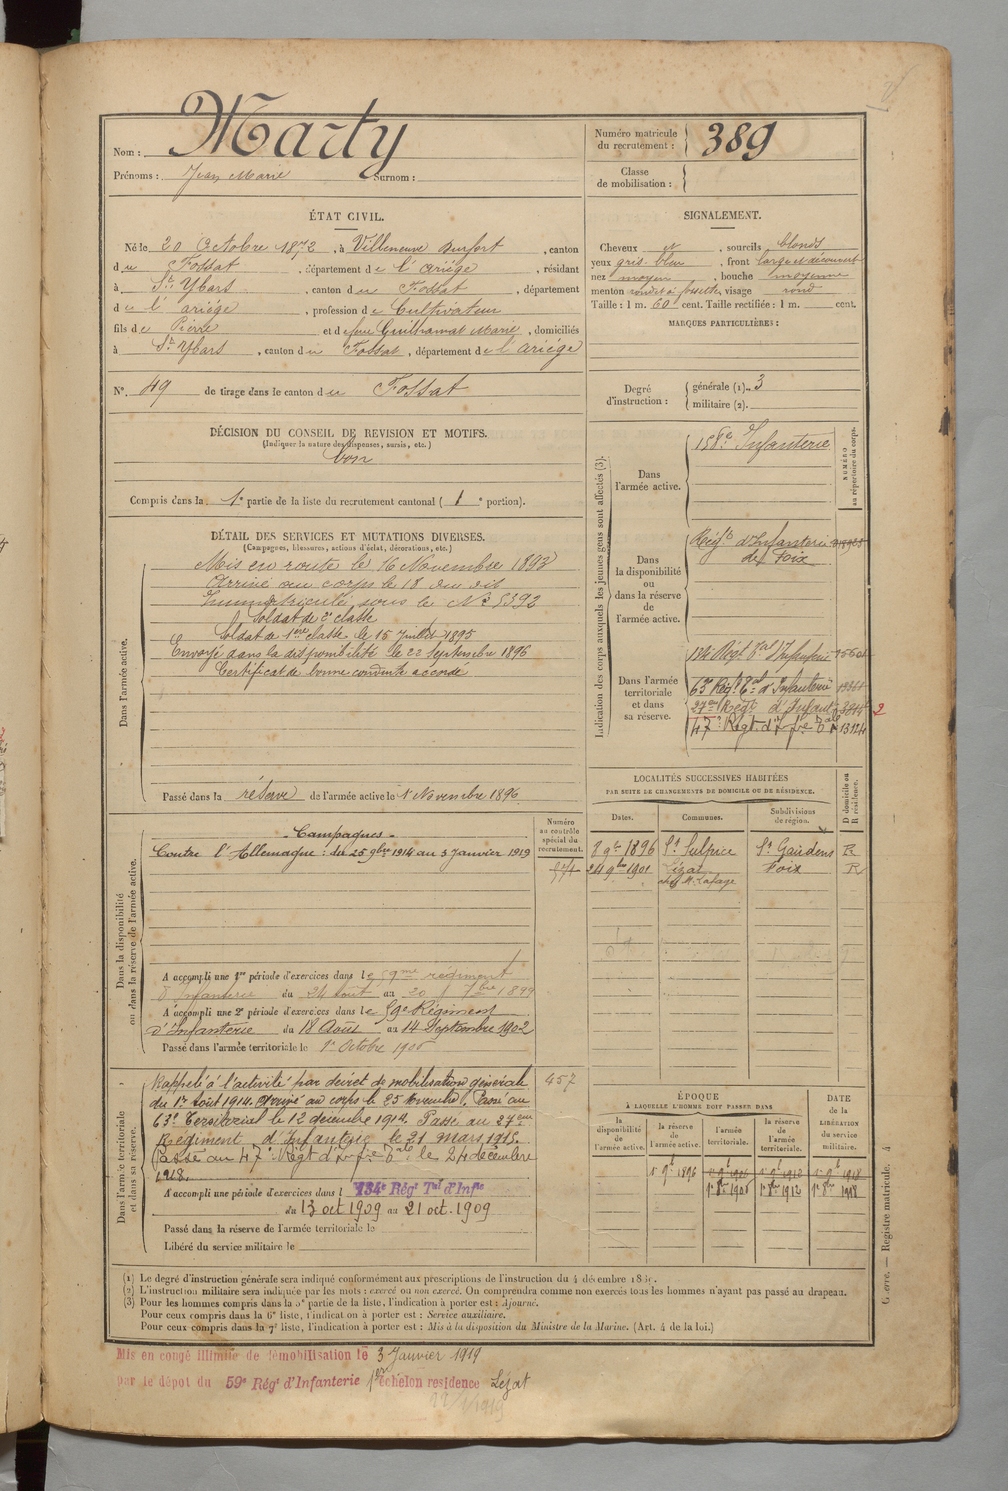 Nom : Marty
Prénoms : Jean Marie Surnom :
Numéro matricule du recrutement : 389
Classe de mobilisation :
ÉTAT CIVIL.
Né le 20 Octobre 1872, à Villeneuve Durfort, canton
du Fossat, département de l'ariége, résidant
à St Ybars, canton du Fossat, département
de l'ariége, profession de Cultivateur
fils de Pierre et de feue Guilhamat Marie, domiciliés
à St Ybars, canton du Fossat, département de l'Ariége
No. 49 de tirage dans le canton du Fossat
DÉCISION DU CONSEIL DE REVISION ET MOTIFS.
(Indiquer la nature des dispenses, sursis, etc.)
bon
Compris dans la 1e partie de la liste du recrutement cantonal (1e portion).
SIGNALEMENT.
Cheveux et, sourcils blonds
yeux gris bleu, front large et découvert
nez moyen, bouche moyenne
menton rond et à fossette, visage rond
Taille : 1 m. 60 cent. Taille rectifiée : 1 m. cent.
MARQUES PARTICULIÈRES :
Degré d'instruction : générale (1). 3
militaire (2).
DÉTAIL DES SERVICES ET MUTATIONS DIVERSES.
(Campagnes, blessures, actions d'éclat, décorations, etc.)
Dans l'armée active.
Mis en route le 16 Novembre 1893
Arrivé au corps le 18 du dit
Immatriculé sous le No 5392
Soldat de 2e classe
Soldat de 1ere classe le 15 Juillet 1895
Envoyé dans la disponibilité le 22 Septembre 1896
Certificat de bonne conduite accordé
Passé dans la réserve de l'armée active le 1 Novembre 1896
Indication des corps auxquels les jeunes gens sont affectés (3).
NUMÉRO au répertoire du corps.
Dans l'armée active.
158e Infanterie
Dans la disponibilité ou dans la réserve de l'armée active.
Regt d'Infanterie
de Foix
Dans l'armée territoriale et dans sa réserve.
134 Régt Tal d'Infanterie
63e Régt Tal d'Infanterie
27eme Régt d'Infant. 2
47e Regt d'Ifie 13124
LOCALITÉS SUCCESSIVES HABITÉES
PAR SUITE DE CHANGEMENTS DE DOMICILE OU DE RÉSIDENCE.
Dates. Communes. Subdivisions de région. D domicile ou R résidence.
8 9bre 1896 St Sulpice St Gaudens R
24 9bre 1901 Lézat Foix R
chez M. Lafage
Dans la disponibilité ou dans la réserve de l'armée active.
Numéro au contrôle spécial du recrutement.
Campagnes
Contre l'Allemagne : du 25 9bre 1914 au 3 Janvier 1919
A accompli une 1re période d'exercices dans le 59me régiment
d'Infanterie du 24 août au 20 7bre 1899
A accompli une 2e période d'exercices dans le 59e Régiment
d'Infanterie du 18 Août au 14 Septembre 1902
Passé dans l'armée territoriale le 1r Octobre 1906
Dans l'armée territoriale et dans sa réserve.
457
Rappelé à l'activité par décret de mobilisation générale
du 1er août 1914. Arrivé au corps le 25 Novembre. Passé au
63e Territorial le 12 décembre 1914. Passé au 27eme
Régiment d'Infanterie le 21 mars 1915.
Passé au 47e Régt d'Ifie le 24 décembre
1918.
A accompli une période d'exercices dans l 134e Régt Tal d'Infie
du 13 oct 1909 au 21 oct. 1909
Passé dans la réserve de l'armée territoriale le
Libéré du service militaire le
ÉPOQUE
À LAQUELLE L'HOMME DOIT PASSER DANS
la disponibilité de l'armée active. la réserve de l'armée active. l'armée territoriale. la réserve de l'armée territoriale.
DATE de la LIBÉRATION du service militaire.
1r 9b 1896 1r 9b 1906 1r 9b 1912 1r 9b 1918
1r 8bre 1906 1r 8bre 1912 1r 8bre 1918
(1) Le degré d'instruction générale sera indiqué conformément aux prescriptions de l'instruction du 4 décembre
(2) L'instruction militaire sera indiquée par les mots : exercé ou non exercé. On comprendra comme non exercés tous les hommes n'ayant pas passé au drapeau.
(3) Pour les hommes compris dans la 5e partie de la liste, l'indication à porter est : Ajourné.
Pour ceux compris dans la 6e liste, l'indication à porter est : Service auxiliaire.
Pour ceux compris dans la 7e liste, l'indication à porter est : Mis à la disposition du Ministre de la Marine. (Art. 4 de la loi.)
Guerre. — Registre matricule. 4
Mis en congé illimité de démobilisation le 3 Janvier 1919
par le dépôt du 59e Régt d'Infanterie 1er échelon residence Lezat